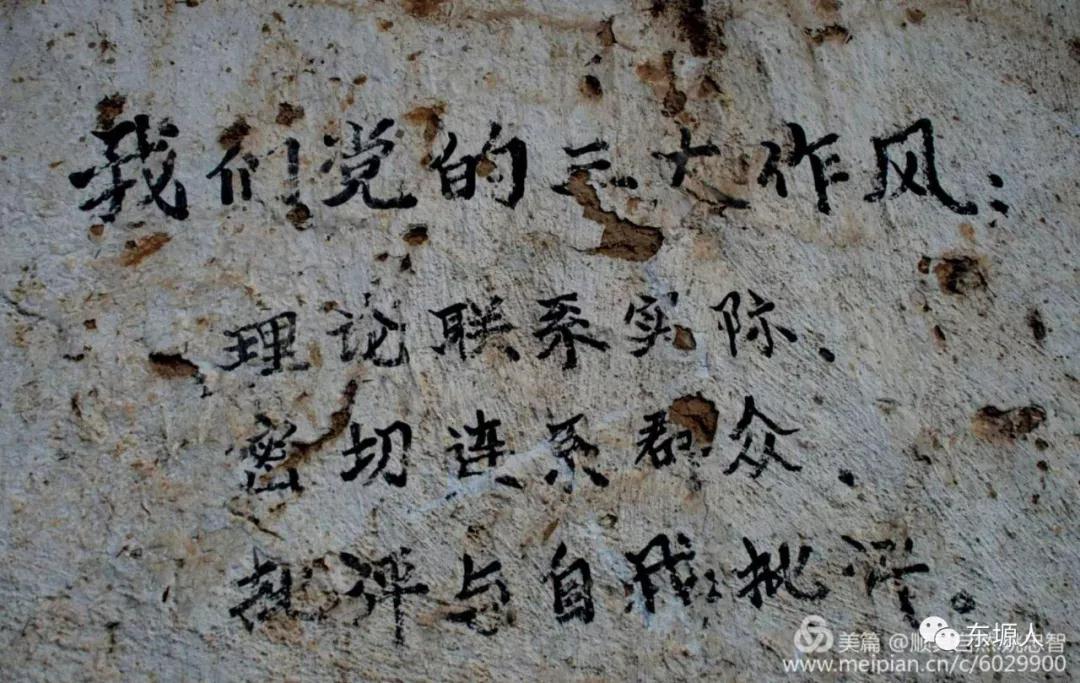 我们党的三大作风：
理论联系实际、
密切连系群众、
批评与自我批评。
东塬人
美篇 @顺其自然 忠智
www.meipian.cn/c/6029900